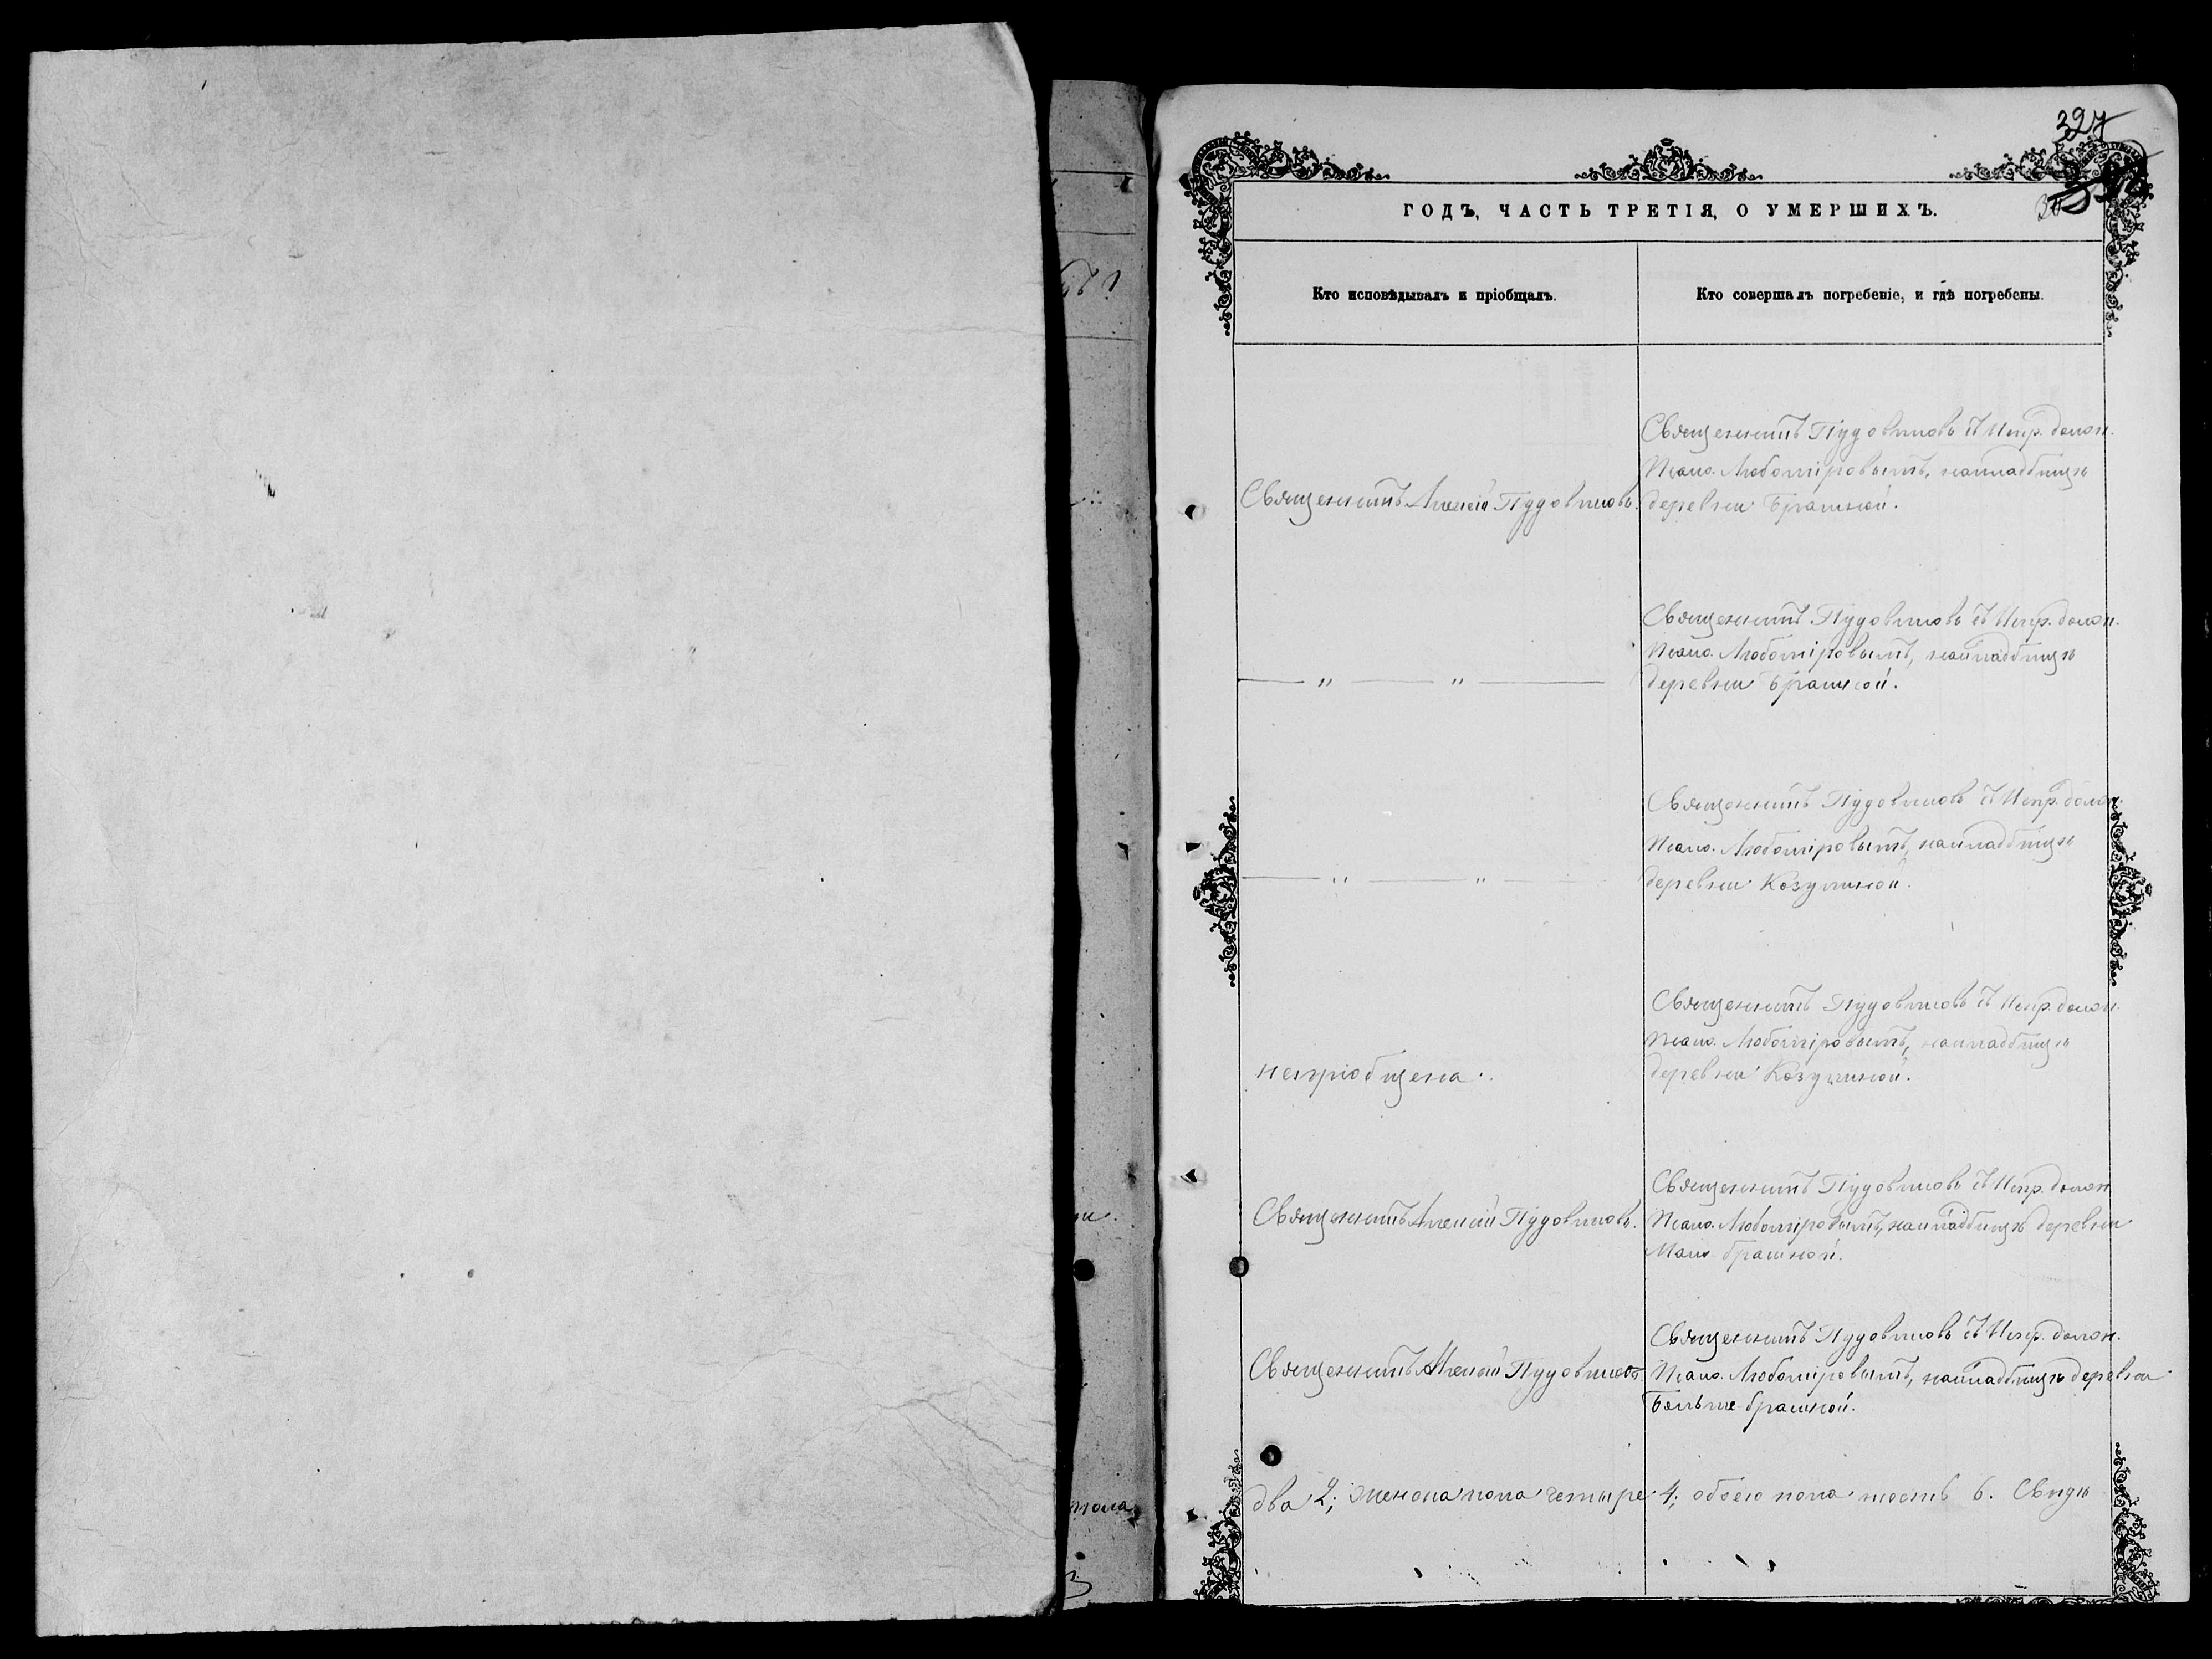 327
ГОДЪ, ЧАСТЬ ТРЕТІЯ, О УМЕРШИХЪ.
Кто исповѣдывалъ и пріобщалъ.
Кто совершалъ погребеніе, и гдѣ погребены.
Священникъ Алексій Пудовиковъ.
Священникъ Пудовиковъ съ Испр. долж.
Псало. Любоміровымъ, на кладбищѣ
деревни Бражной.
— " — " —
Священникъ Пудовиковъ съ Испр. долж.
Псало. Любоміровымъ, на кладбищѣ
деревни Бражной.
— " — " —
Священникъ Пудовиковъ съ Испр. долж.
Псало. Любоміровымъ, на кладбищѣ
деревни Козулиной.
непріобщена.
Священникъ Пудовиковъ съ Испр. долж.
Псало. Любоміровымъ, на кладбищѣ
деревни Козулиной.
Священникъ Алексій Пудовиковъ.
Священникъ Пудовиковъ съ Испр. долж.
Псало. Любоміровымъ, на кладбищѣ деревни
Мало-бражной.
Священникъ Алексій Пудовиковъ.
Священникъ Пудовиковъ съ Испр. долж.
Псало. Любоміровымъ, на кладбищѣ деревни
Больше-бражной.
два 2; женска пола четыре 4; обоего пола шесть 6.
пола